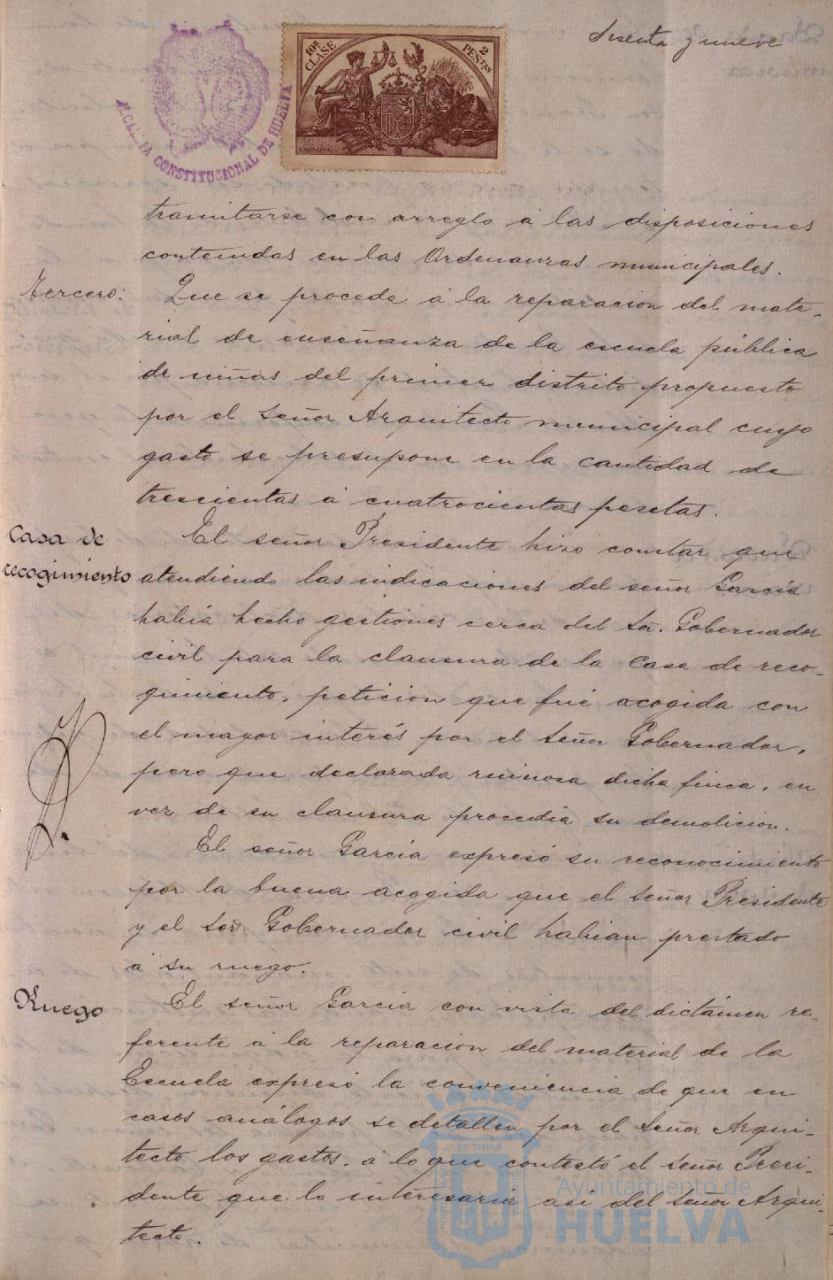 Sesenta y nueve
ALCALDIA CONSTITUCIONAL DE HUELVA
10ª CLASE
2 PESTAS
tramitarse con arreglo á las disposiciones
contenidas en las Ordenanzas municipales.
Tercero: Que se proceda á la reparacion del mate-
rial de enseñanza de la escuela pública
de niñas del primer distrito propuesto
por el Señor Arquitecto municipal cuyo
gasto se presupone en la cantidad de
trescientas á cuatrocientas pesetas.
Casa de
recogimiento
El señor Presidente hizo constar que
atendiendo las indicaciones del señor García
había hecho gestiones cerca del Sor. Gobernador
civil para la clausura de la Casa de reco-
gimiento, peticion que fué acogida con
el mayor interés por el Señor Gobernador,
pero que declarada ruinosa dicha finca, en
vez de su clausura procedía su demolicion.
El señor García expresó su reconocimiento
por la buena acogida que el Señor Presidente
y el Sor. Gobernador civil habian prestado
á su ruego.
Ruego
El señor García con vista del dictámen re-
ferente á la reparacion del material de la
Escuela expresó la conveniencia de que en
casos análogos se detallen por el Señor Arqui-
tecto los gastos, á lo que contestó el Señor Presi-
dente que lo interesaria así del Señor Arqui-
tecto.
Ayuntamiento de
HUELVA